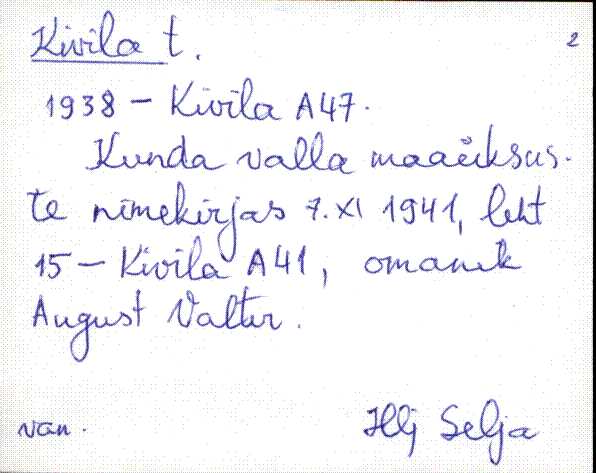 Kivila t.
2
1938 - Kivila A47.
Kunda valla maaüksus-
te nimekirjas 7.XI 1941, leht
15 - Kivila A41, omanik
August Valter.
van.
Hlj Selja